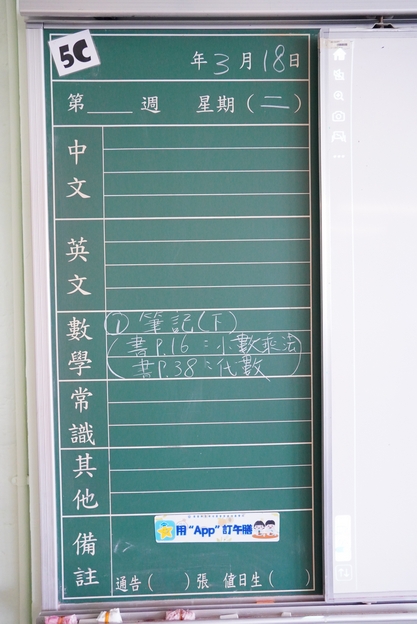 5C
年3月18日
第____週 星期(二)
中文
英文
數學
① 筆記(下)
(書P.16:小數乘法
書P.38:代數)
常識
其他
備註
用“App”訂午膳
通告( )張 值日生( )